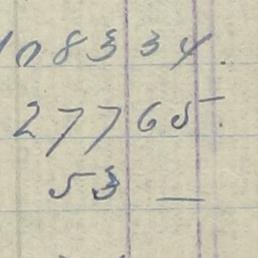 108334.
27765.
53 —